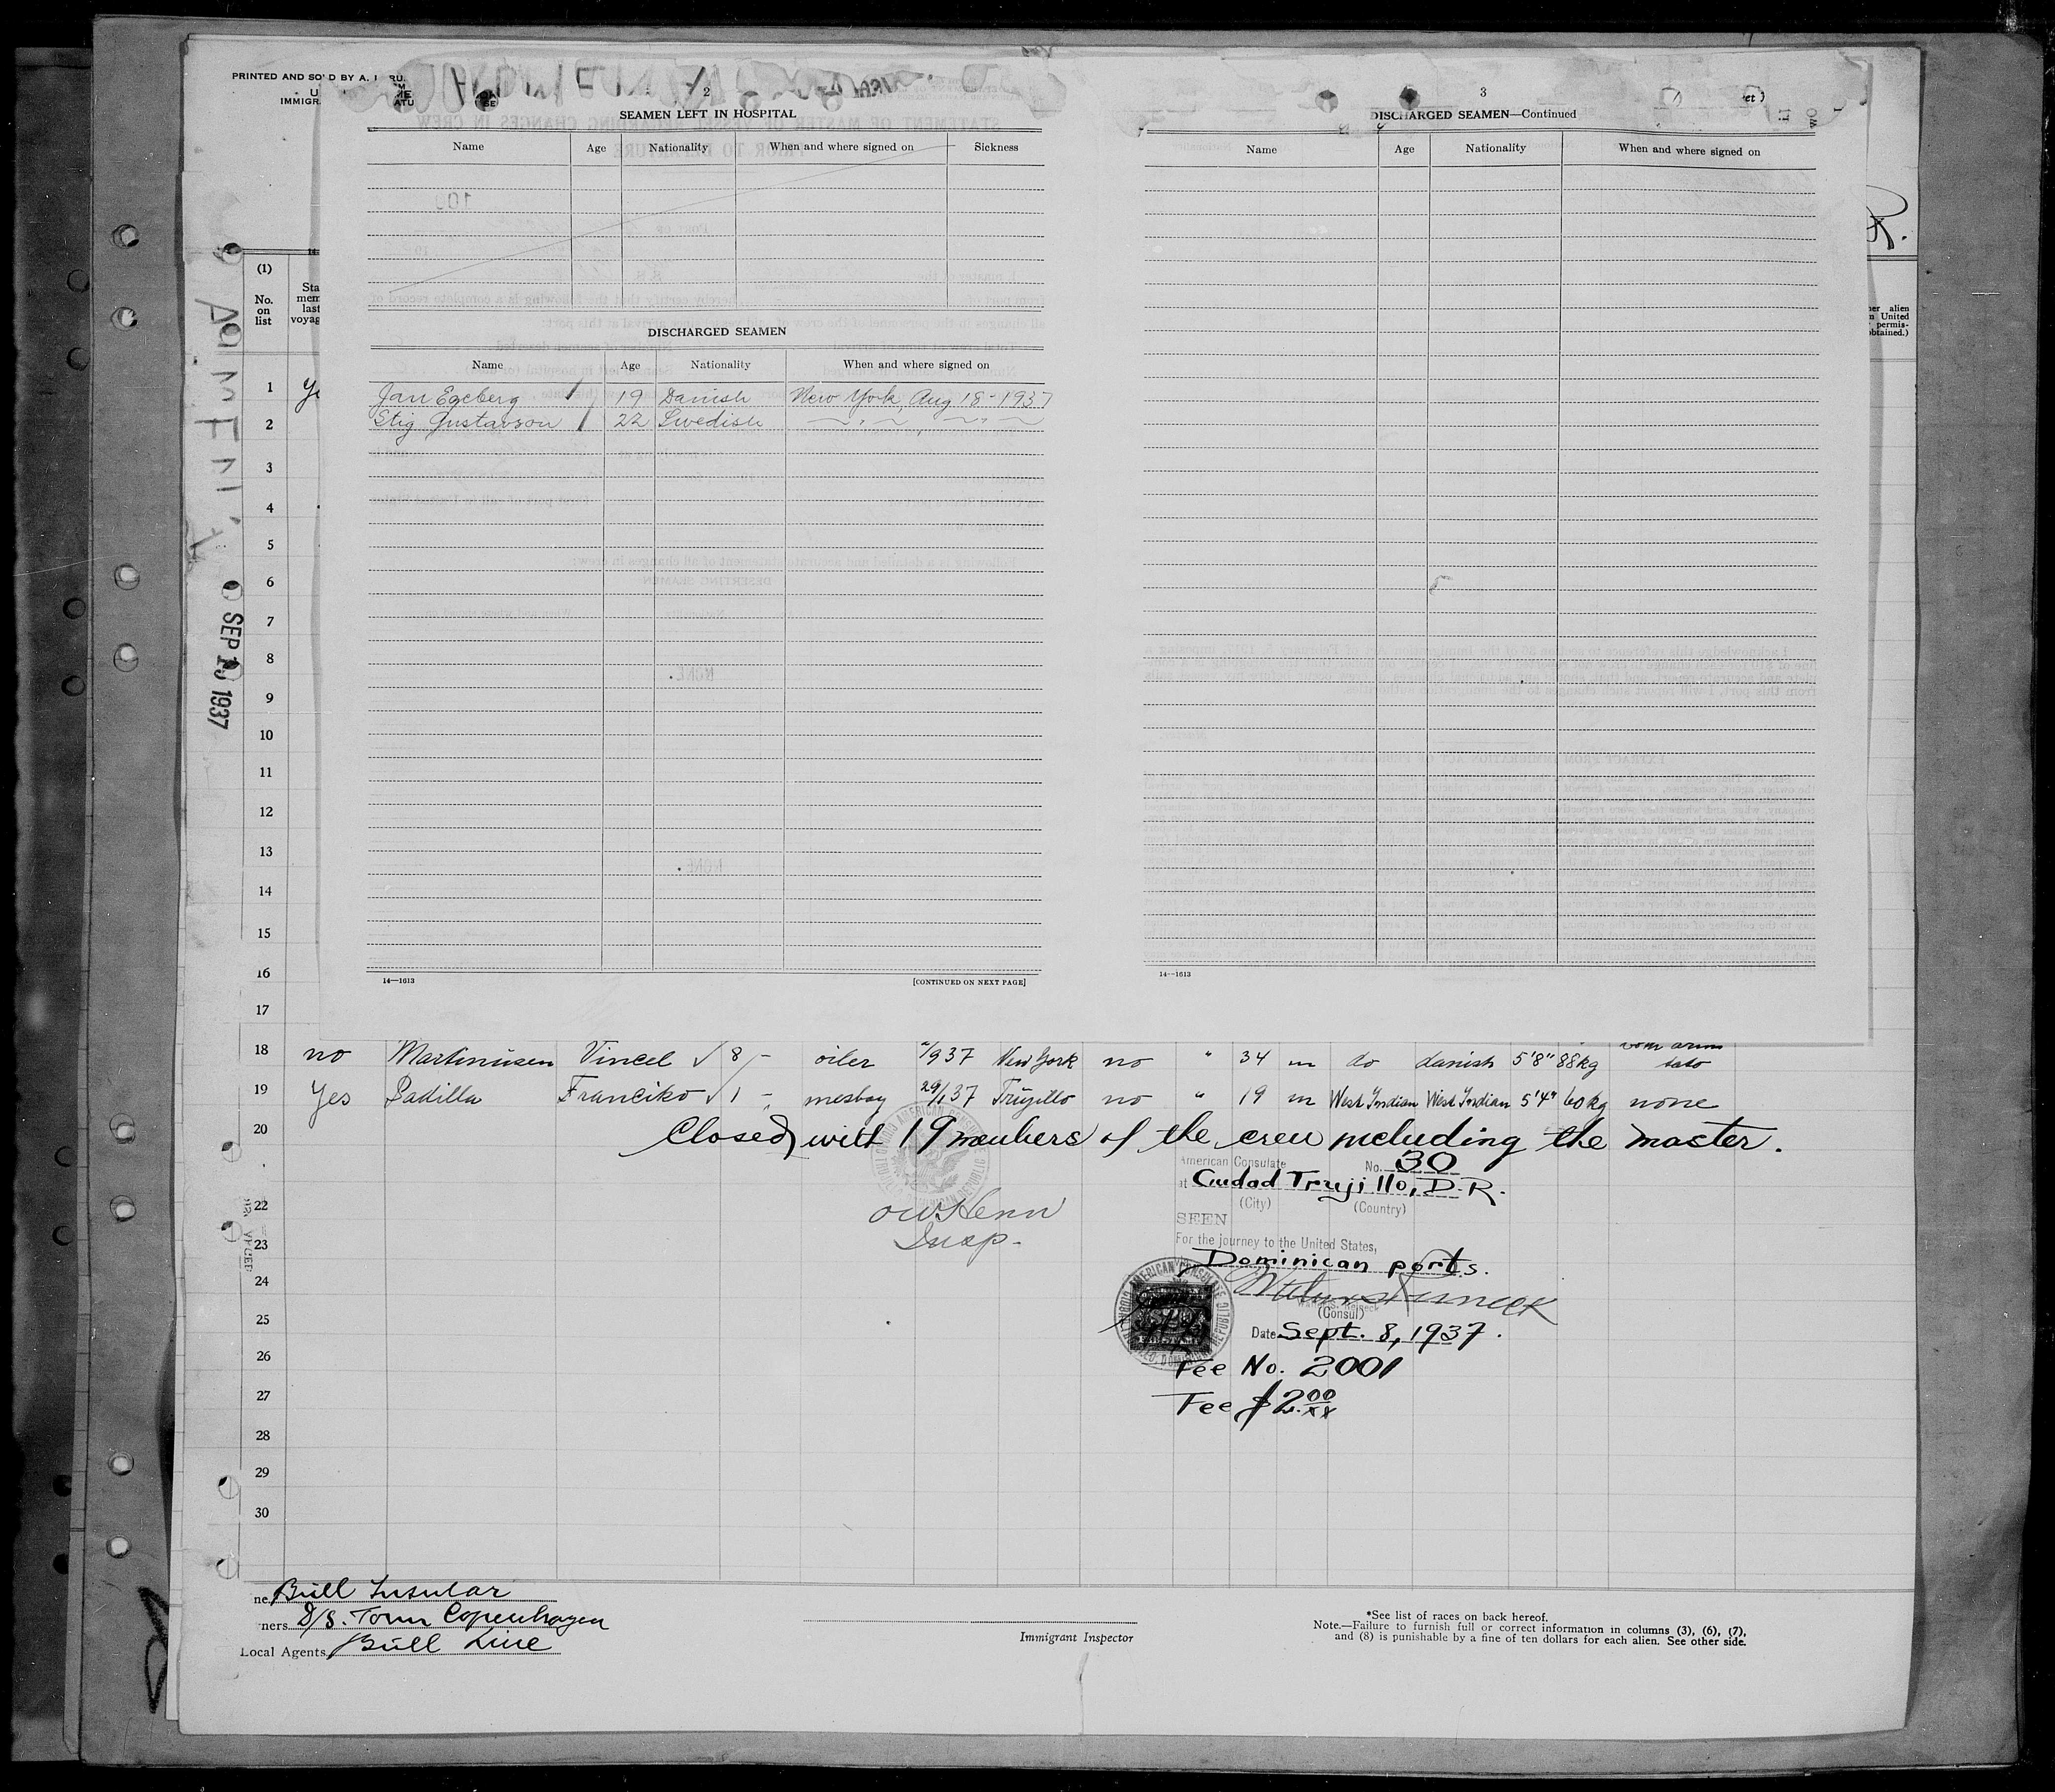 PRINTED AND SOLD BY A.
IMMIGR
2
SEAMEN LEFT IN HOSPITAL
Name Age Nationality When and where signed on Sickness
DISCHARGED SEAMEN
Name Age Nationality When and where signed on
Jan Egeberg 19 Danish New York, Aug 18-1937
Stig Gustavson 22 Swedish — " — , — " —
14—1613 [CONTINUED ON NEXT PAGE]
3
DISCHARGED SEAMEN—Continued
Name Age Nationality When and where signed on
14—1613
R.
(1)
No.
on
list
Sta
mem
last
voyag
her alien
n United
permis-
obtained.)
SEP 13 1937
1 Ye
2
3
4
5
6
7
8
9
10
11
12
13
14
15
16
17
18 no Martinusen Vincel √ 8 - oiler 2/9 37 New York no " 34 m do danish 5'8" 88kg tato
19 Yes Padilla Francisko √ 1 - mesboy 29/1 37 Trujillo no " 19 m West Indian West Indian 5'4" 60kg none
20 Closed with 19 members of the crew including the master.
American Consulate No. 30
at Ciudad Trujillo, D.R.
(City) (Country)
22
SEEN
For the journey to the United States,
OW Henn
Insp.
23
Dominican ports.
24
(Consul)
25
Date Sept. 8, 1937.
26
Fee No. 2001
27
Fee $2.00
xx
28
29
30
ne Bull Insular
ners D/S. Torm Copenhagen
Local Agents Bull Line
Immigrant Inspector
*See list of races on back hereof.
Note.—Failure to furnish full or correct information in columns (3), (6), (7),
and (8) is punishable by a fine of ten dollars for each alien. See other side.